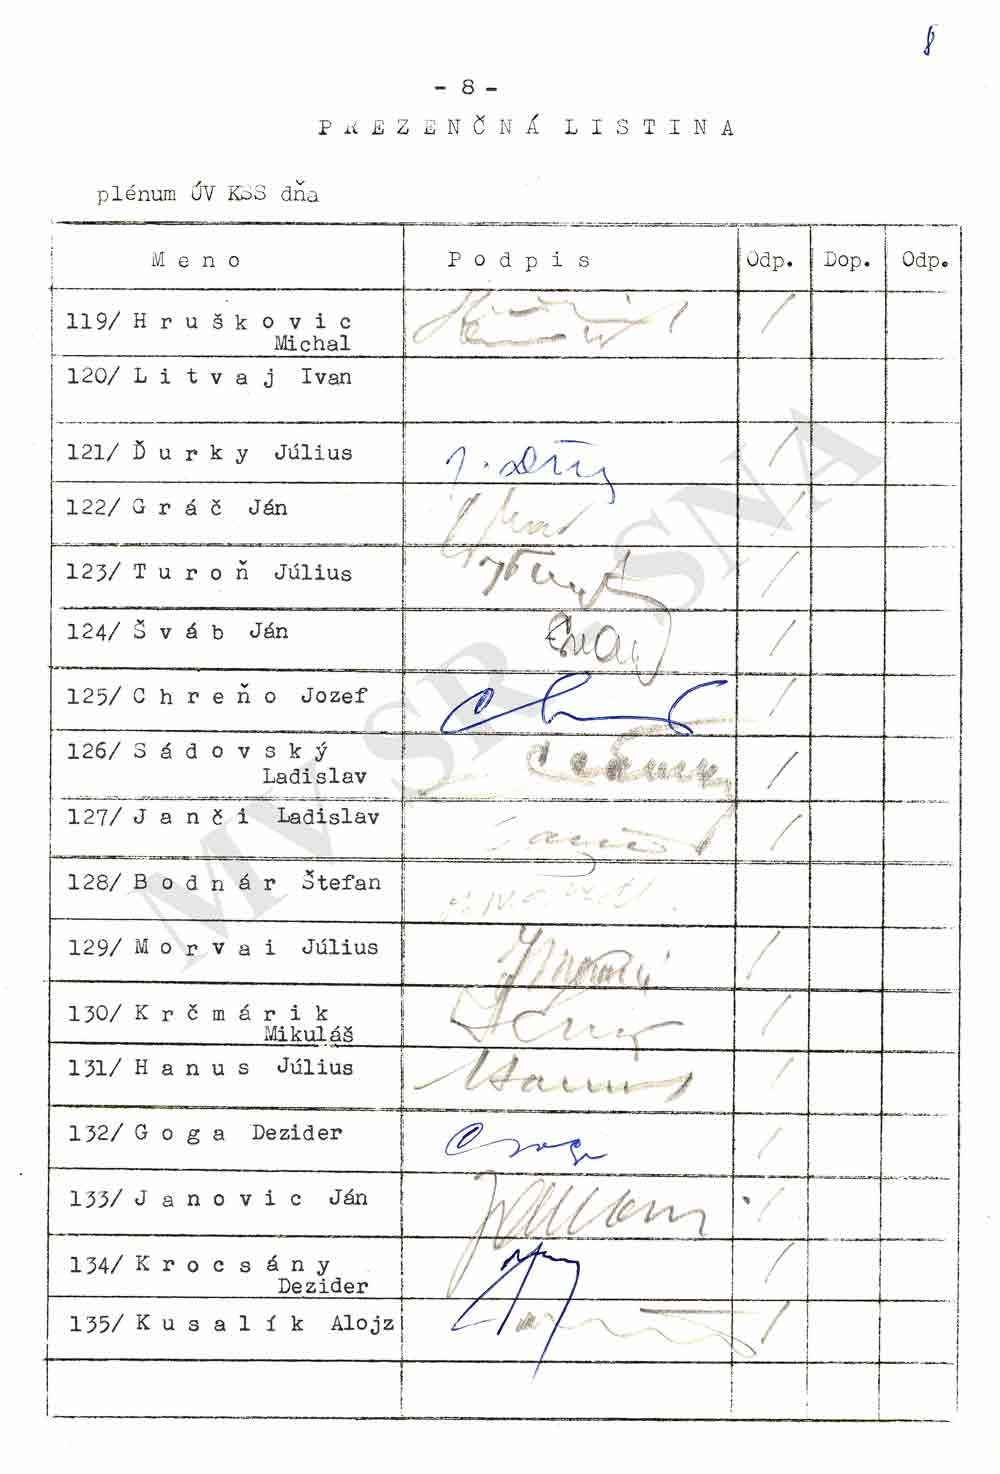 8
- 8 -
PREZENČNÁ LISTINA
plénum ÚV KSS dňa
Meno Podpis Odp. Dop. Odp.
119/ Hruškovic
Michal
120/ Litvaj Ivan
121/ Ďurky Július
122/ Gráč Ján
123/ Turoň Július
124/ Šváb Ján
125/ Chreňo Jozef
126/ Sádovský
Ladislav
127/ Janči Ladislav
128/ Bodnár Štefan
129/ Morvai Július
130/ Krčmárik
Mikuláš
131/ Hanus Július
132/ Goga Dezider
133/ Janovic Ján
134/ Krocsány
Dezider
135/ Kusalík Alojz
MV SR - SNA